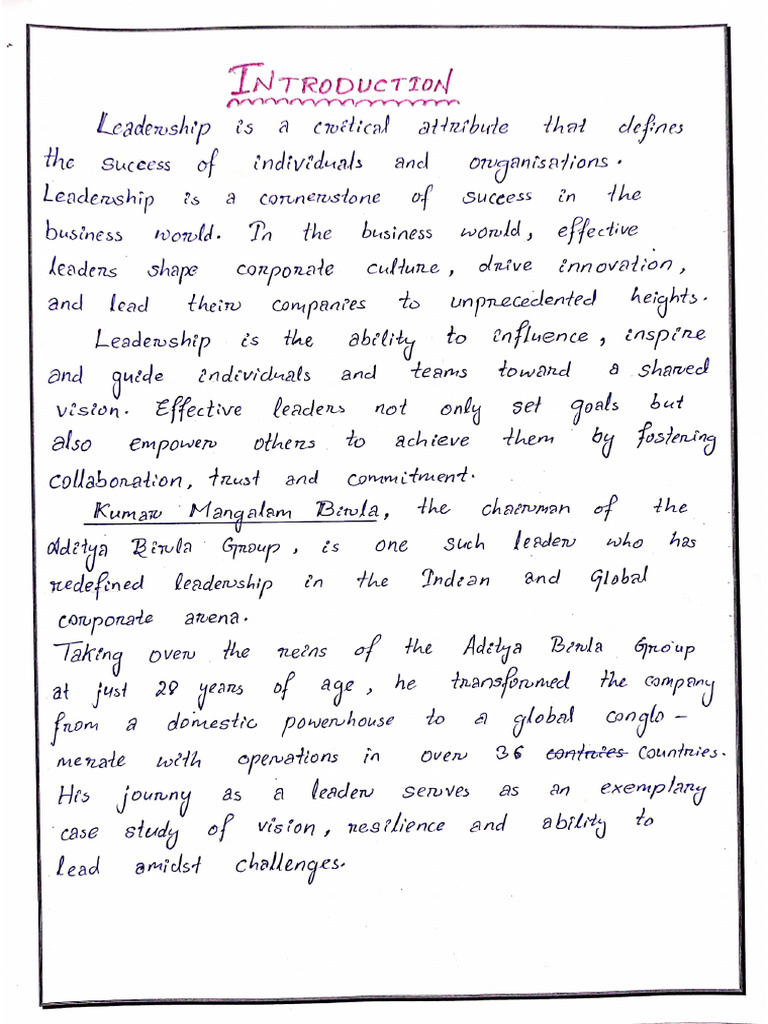 INTRODUCTION
Leadership is a critical attribute that defines
the success of individuals and organisations.
Leadership is a cornerstone of success in the
business world. In the business world, effective
leaders shape corporate culture, drive innovation,
and lead their companies to unprecedented heights.
Leadership is the ability to influence, inspire
and guide individuals and teams toward a shared
vision. Effective leaders not only set goals but
also empower others to achieve them by fostering
collaboration, trust and commitment.
Kumar Mangalam Birla, the chairman of the
Aditya Birla Group, is one such leader who has
redefined leadership in the Indian and Global
corporate arena.
Taking over the reins of the Aditya Birla Group
at just 28 years of age, he transformed the company
from a domestic powerhouse to a global conglo-
merate with operations in over 36 contries countries.
His journy as a leader serves as an exemplary
case study of vision, resilience and ability to
lead amidst challenges.